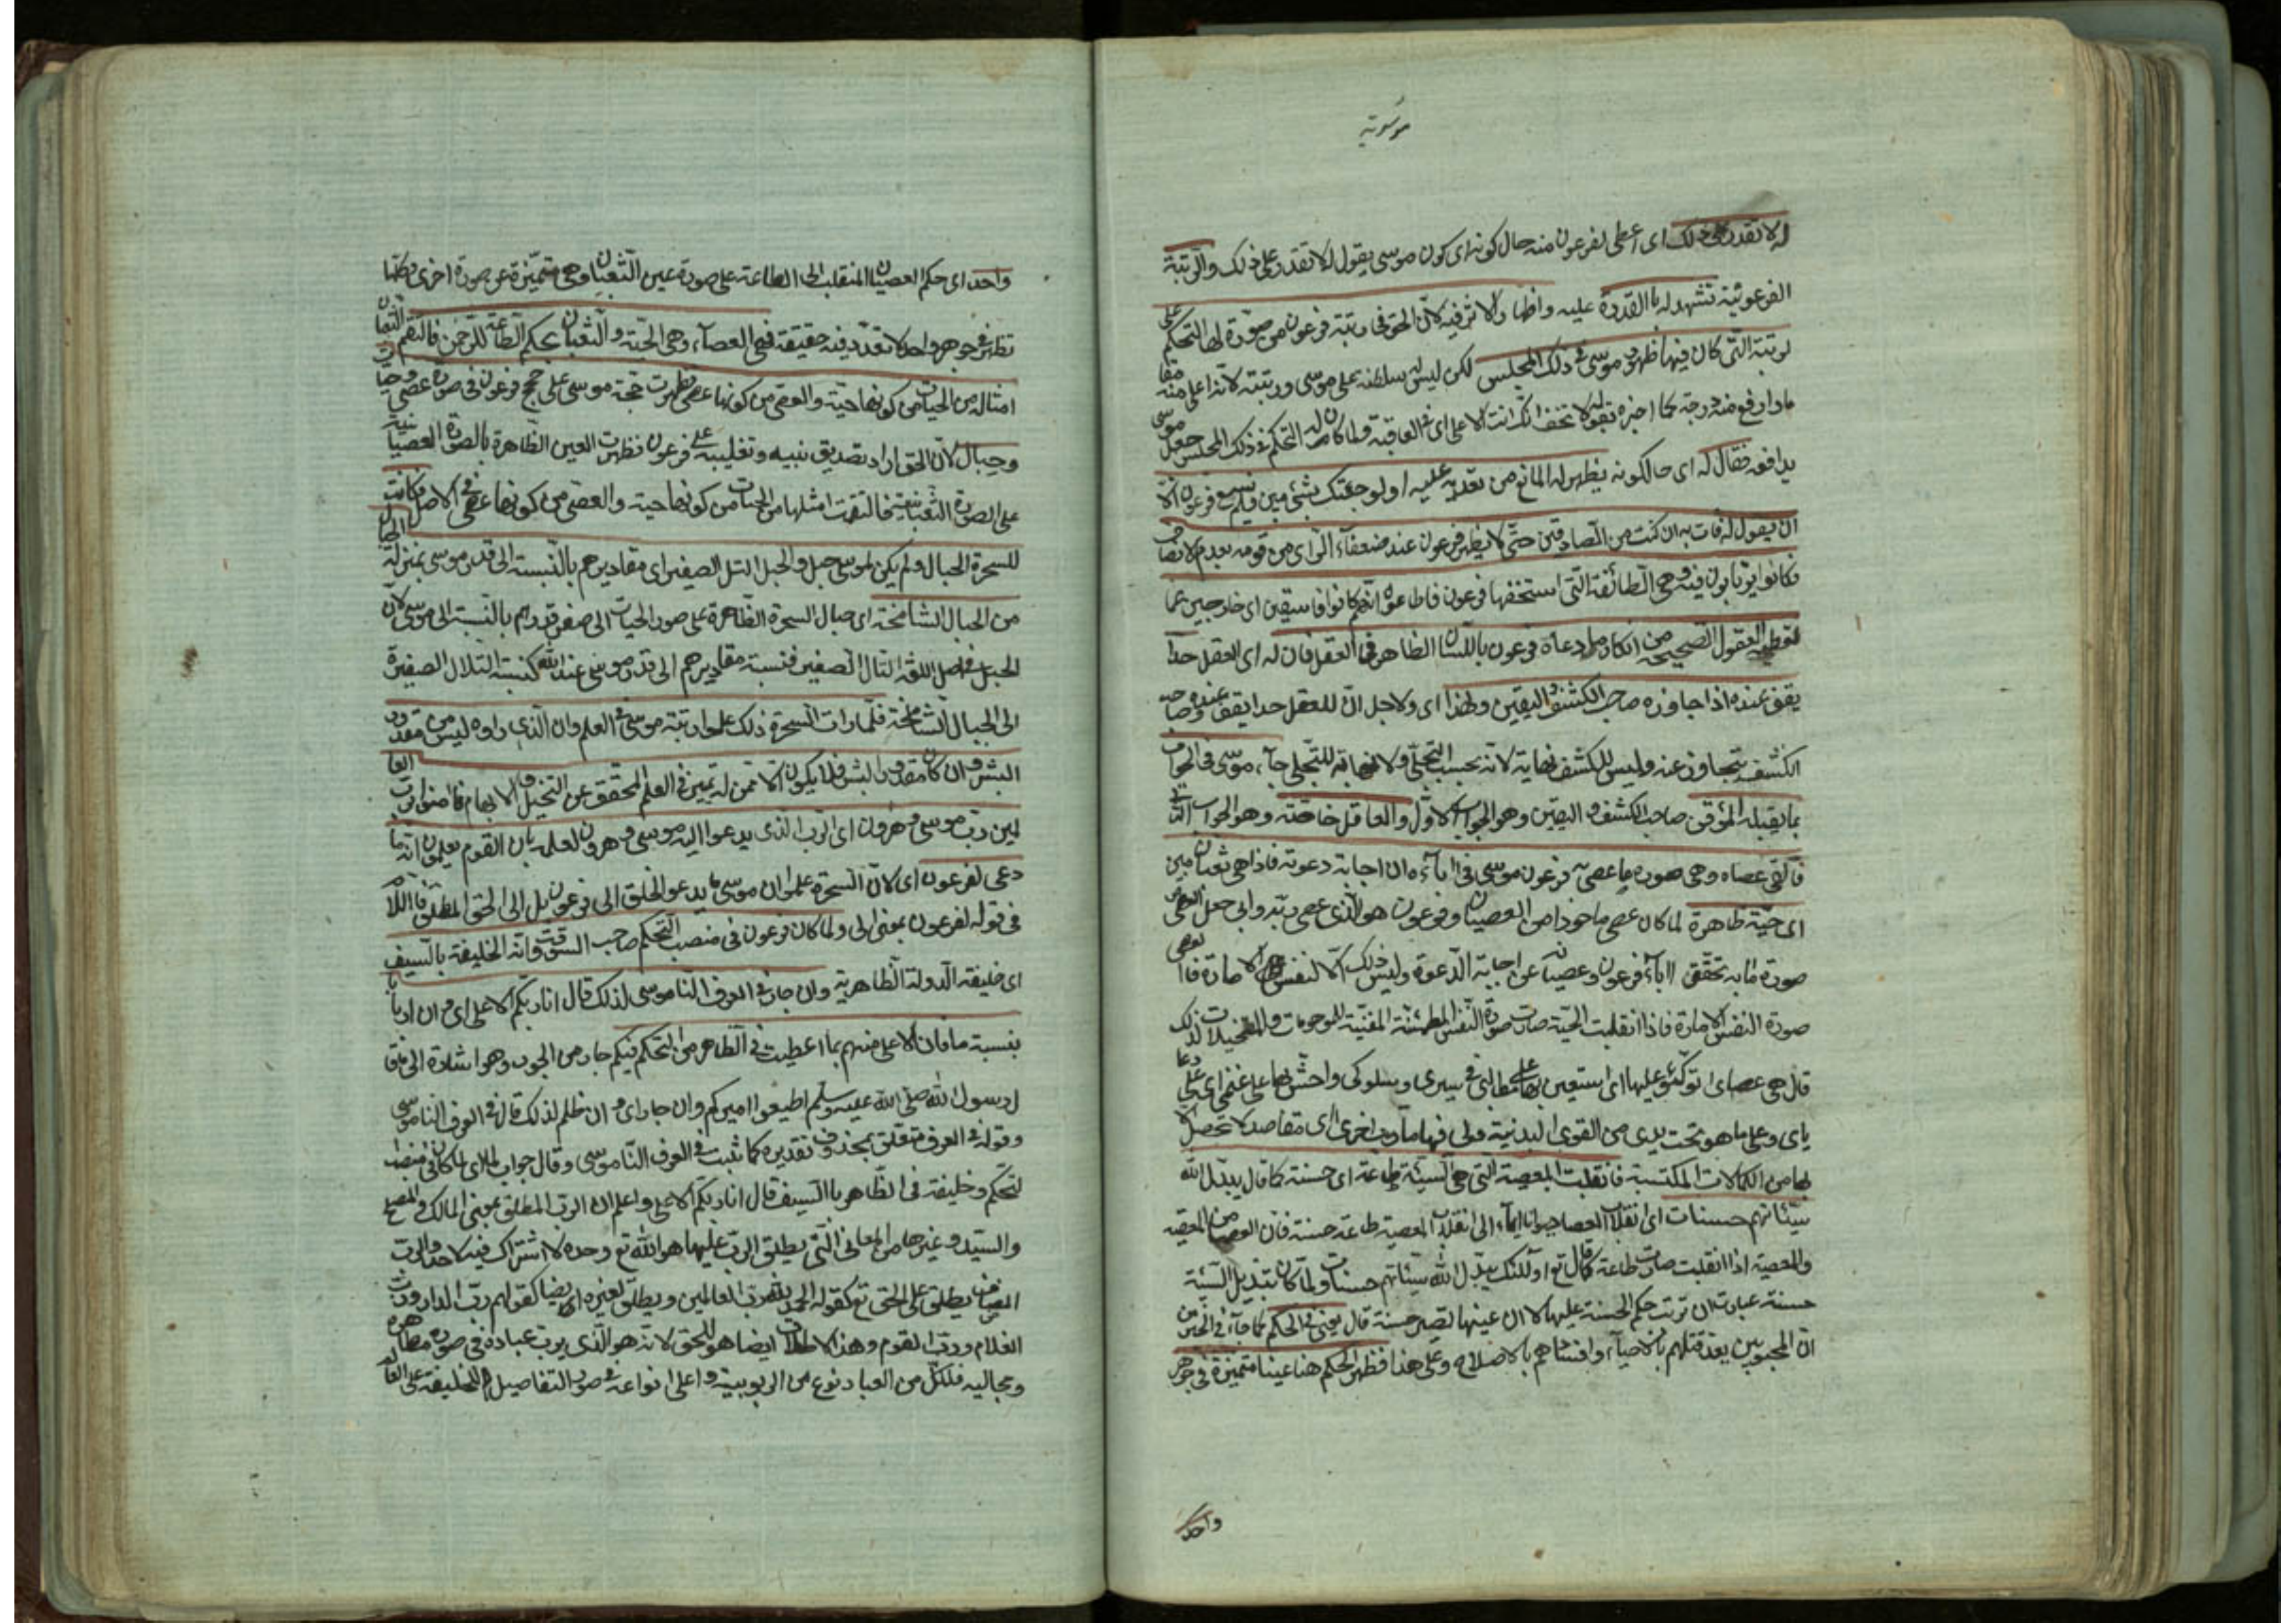 موسوية
له لا تقدر على ذلك اى اعطى لفرعون منه حال كونه اى كون موسى يقول له لا تقدر على ذلك والرتبة
الفرعونية تشهد له بالقدرة عليه واظهار الاثر فيه لان الحق فى رتبة فرعون من صورة لها التحكم على
الرتبة التى كان فيها ظهور موسى فى ذلك المجلس لكن ليس له سلطنة على موسى ورتبته لانه اعلى منه مقا
ما وارفع منه درجة كما اخبره بقوله لا تخف انك انت الاعلى اى فى العاقبة ولما كان له التحكم فى ذلك المجلس جعل موسى
يدافعه فقال له اى حالكونه يظهر له المانع من تعديه عليه اولو جئتك بشئ مبين فلم يسمع فرعون الا
ان يقول له فات به ان كنت من الصادقين حتى لا يظهر فرعون عند ضعفاء الراى من قومه بعدم الانصاف
فكانوا يرتابون فيه وهى الطائفة التى استخفها فرعون فاطاعوه انهم كانوا فاسقين اى خارجين عما
تعطيه العقول الصحيحة من انكار ما ادعاه فرعون باللسان الظاهر فى العقل فان له اى العقل حدا
يقف عنده اذا جاوزه صاحب الكشف واليقين ولهذا اى ولاجل ان للعقل حدا يقف عنده وصاحب
الكشف يتجاوز عنه وليس للكشف نهاية لانه بحسب التجلى ولا نهاية للتجلى جاء موسى فى الجواب
بما يقبله الموقن صاحب الكشف واليقين وهو الجواب الاول والعاقل خاصة وهو الجواب الثانى
فالقى عصاه وهى صورة ما عصى به فرعون موسى فى ابائه ان اجابة دعوته فاذا هى ثعبان مبين
اى حية ظاهرة لما كان عصى ماخوذا من العصيان وفرعون هو الذى عصى ربه وابى جعل العصى
صورة ما به تحقق اباء فرعون وعصيانه عن اجابة الدعوة وليس ذلك الا النفس الامارة فالعصى
صورة النفس الامارة فاذا انقلبت الحية صارت صورة النفس المطمئنة المفنية للموهومات والمتخيلات لذلك
قال هى عصاى اتوكئو عليها اى استعين بها على مطالبى فى سيرى وسلوكى واهش بها على غنمى اى على رعا
ياى وعلى ما هو تحت يدى من القوى البدنية ولى فيها مآرب اخرى اى مقاصد لا تحصل الا
بها من الكمالات المكتسبة فانقلبت المعصية التى هى السيئة طاعة اى حسنة كما قال يبدل الله
سيئاتهم حسنات اى انقلاب العصا حيوانا ايماء الى انقلاب المعصية طاعة حسنة فان العصا من المعصية
والمعصية اذا انقلبت صارت طاعة كما قال تع اولئك يبدل الله سيئاتهم حسنات ولما كان تبديل السيئة
حسنة عبارة ان ترتب حكم الحسنة عليها لا ان عينها تصير حسنة قال يعنى فى الحكم كما جاء فى الخبر من
ان المحبوبين يعد قتلهم بالاحياء وافسادهم بالاصلاح وعلى هذا فظهر الحكم هنا عينا متميزة فى جوهر
واحد
واحد اى حكم العصيان المنقلب الى الطاعة على صورة عين الثعبان وهى متميزة عن صورة اخرى وكلها
تظهر فى جوهر واحد لا تعدد فيه حقيقة فهى العصاء وهى الحية والثعبان بحكم الطاعة للرحمن فالتقم الثعبان
امثاله من الحيات من كونها حية والعصى من كونها عصى فظهرت حجة موسى على حجج فرعون فى صورة عصى وحيات
وحبال لان الحق اراد تصديق نبيه وتغليبه على فرعون فظهرت العين الظاهرة بالصورة العصيانية
على الصورة الثعبانية فالتقت امثلها من الحيات من كونها حية والعصى من كونها عصى فى الاصل فكانت
للسحرة الحبال ولم يكن لموسى حبل والحبل التل الصغير اى مقاديرهم بالنسبة الى قدر موسى بمنزلة الحبال
من الجبال الشامخة اى حبال السحرة الظاهرة على صور الحيات الى صغر قدرهم بالنسبة الى موسى لان
الحبل فى اصل اللغة التل الصغير فنسبة مقاديرهم الى قدر موسى عند الله كنسبة التلال الصغيرة
الى الجبال الشامخة فلما رات السحرة ذلك علموا رتبة موسى فى العلم وان الذى راوه ليس من مقدور
البشر وان كان مقدور البشر فلا يكون الا ممن له تميز فى العلم المحقق عن التخيل والايهام فامنوا برب العا
لمين رب موسى وهرون اى الرب الذى يدعو اليه موسى وهرون لعلمه بان القوم يعلمون انه ما
دعى لفرعون اى لان السحرة علموا ان موسى ما يدعو الخلق الى فرعون بل الى الحق المطلق فاللام
فى قوله لفرعون بمعنى الى ولما كان فرعون فى منصب التحكم صاحب الوقت وانه الخليفة بالسيف
اى خليفة الدولة الظاهرية وان جار فى العرف الناموسى لذلك قال انا ربكم الاعلى اى وان اربابا
بنسبة ما فان الاعلى منهم بما اعطيت فى الظاهر من التحكم فيكم جار من الجور وهو اشارة الى ما قا
ل رسول الله صلى الله عليه وسلم اطيعوا اميركم وان جار اى وان ظلم لذلك قال فى العرف الناموسى
وقوله فى العرف متعلق بمحذوف تقديره كما ثبت فى العرف الناموسى وقال جواب لما اى لما كان فى منصب
التحكم وخليفة فى الظاهر بالسيف قال انا ربكم الاعلى واعلم ان الرب المطلق بمعنى المالك والمصلح
والسيد وغيرها من المعانى التى يطلق الرب عليها هو الله تع وحده لا اشتراك فيه لاحد والرب
المضاف يطلق على الحق تع كقوله الحمد لله رب العالمين ويطلق لغيره ايضا كقولهم رب الدار ورب
الغلام ورب القوم وهذا الاطلاق ايضا هو للحق لانه هو الذى يرب عباده فى صورة مظاهره
ومجاليه فلكل من العباد نوع من الربوبية واعلى انواعه فى صور التفاصيل للخليفة على العالم